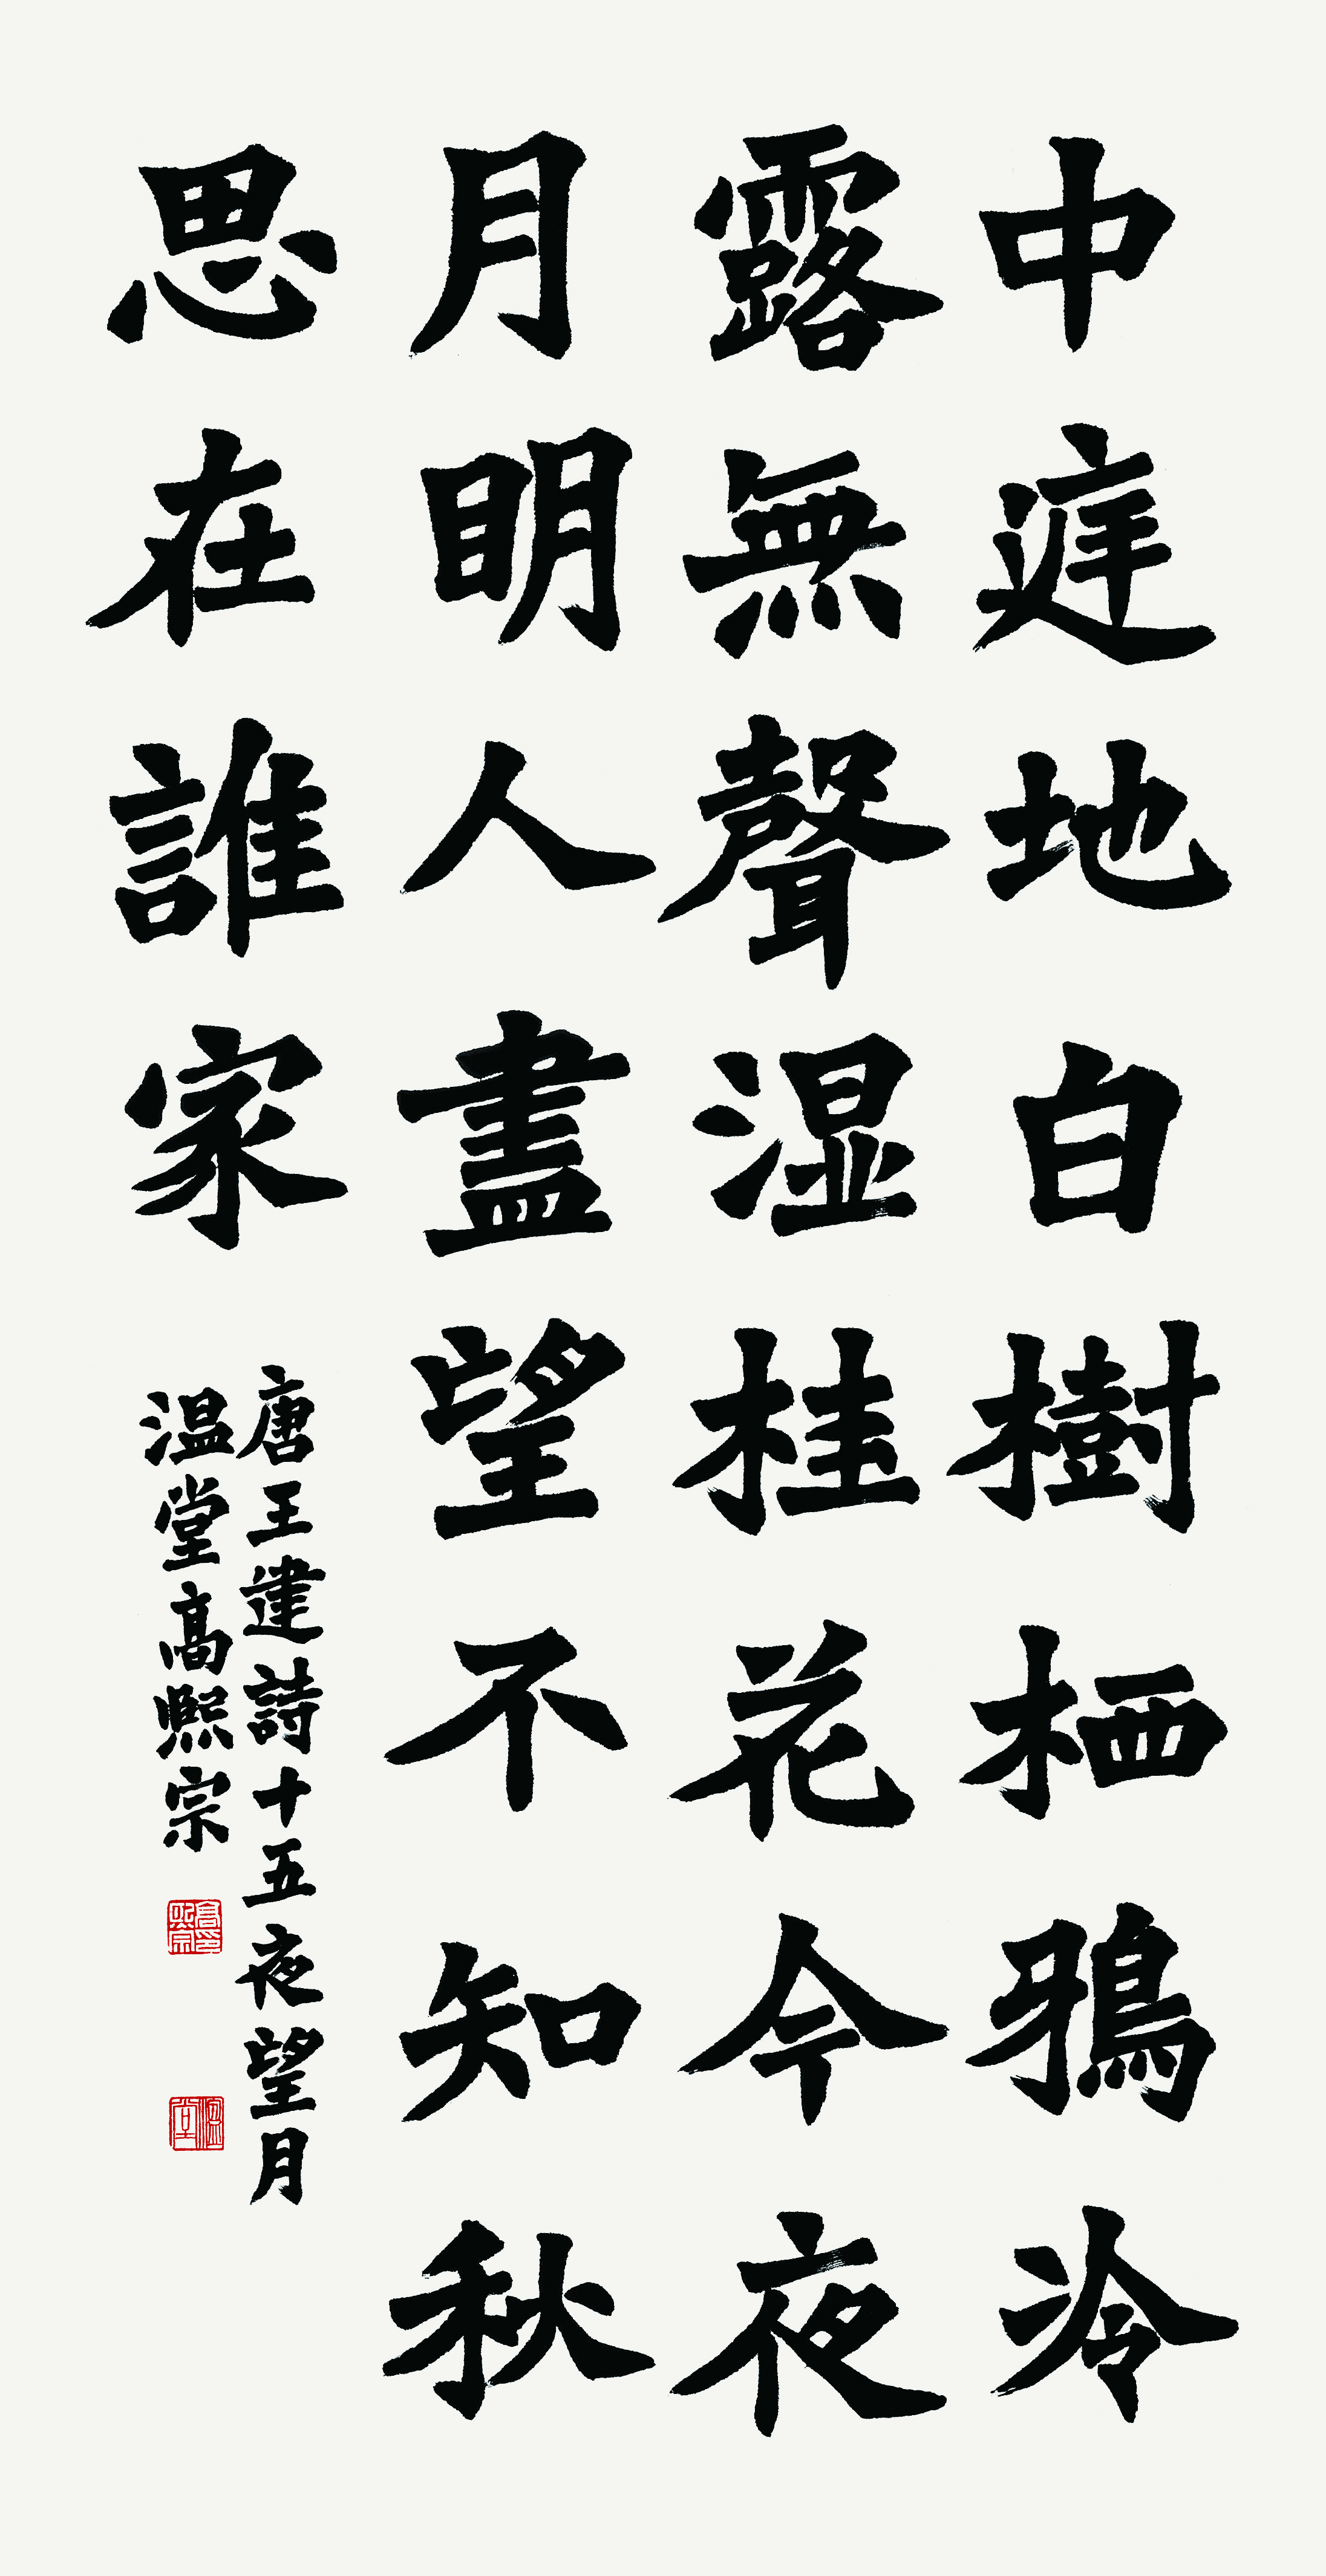 中庭地白樹栖鴉冷
露無聲湿桂花今夜
月明人盡望不知秋
思在誰家
唐王建詩十五夜望月
温堂高熙宗
高熙宗印
温堂